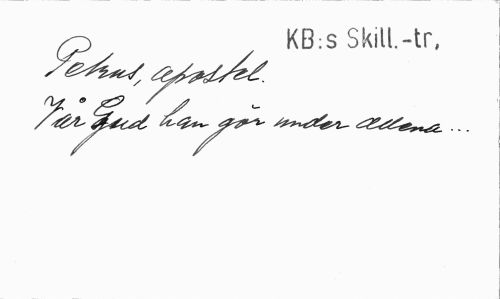 KB:s Skill.-tr,
Petrus, apostel.
Vår Gud han gör under allena...